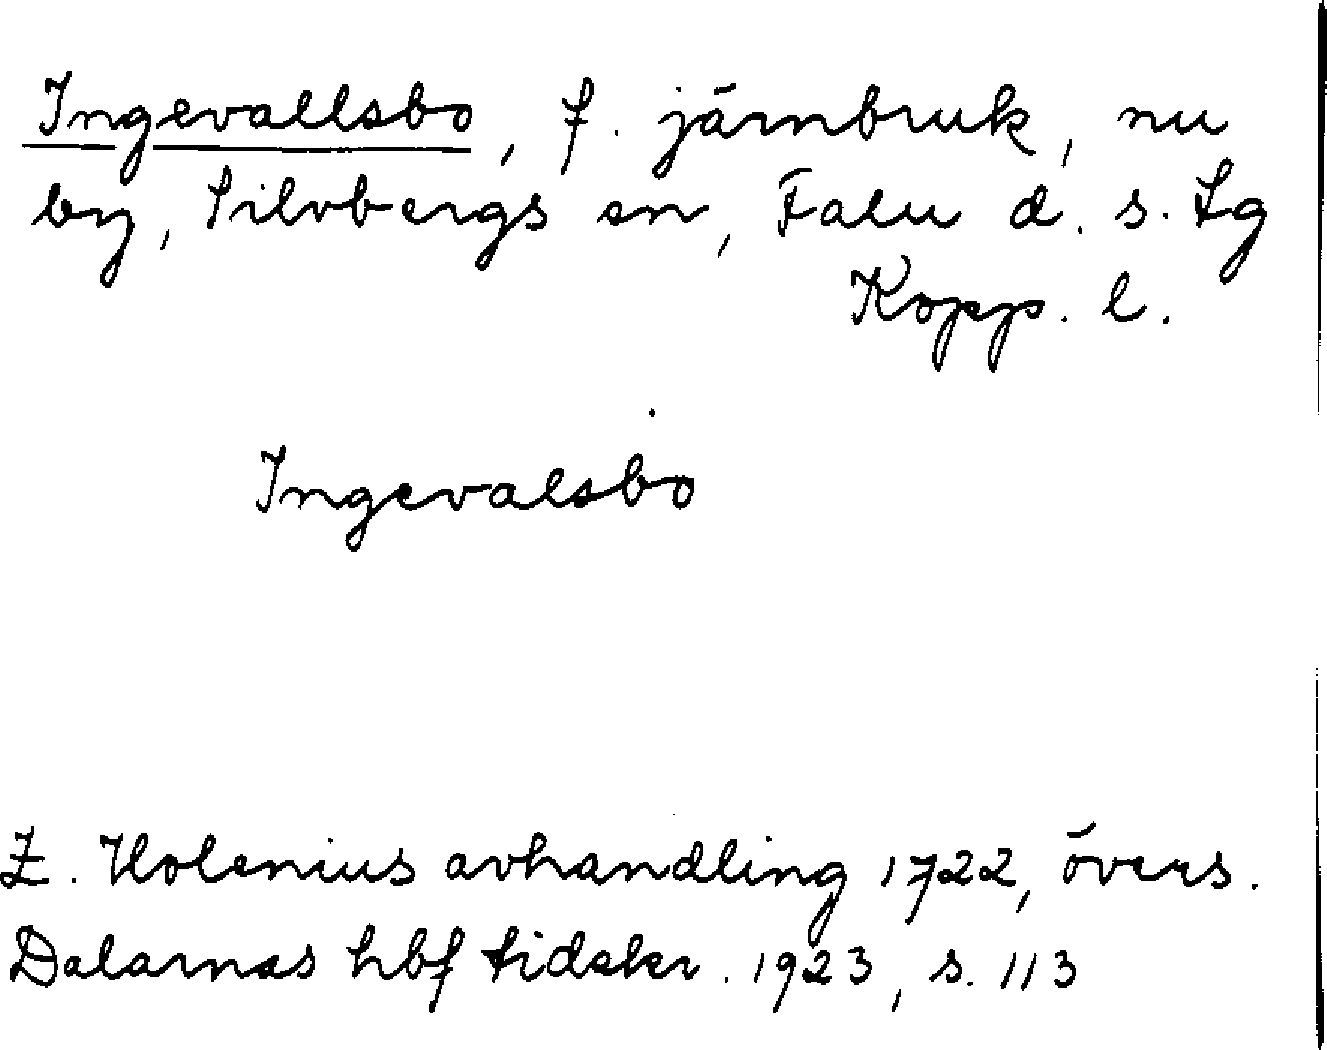 Ingevallsbo, f. järnbruk, nu
by, Silvbergs sn, Falu d. s. Lg
Kopp. l.
Ingevalsbo
Z. Holenius avhandling 1722, övers.
Dalarnas hbf tidskr. 1923, s. 113